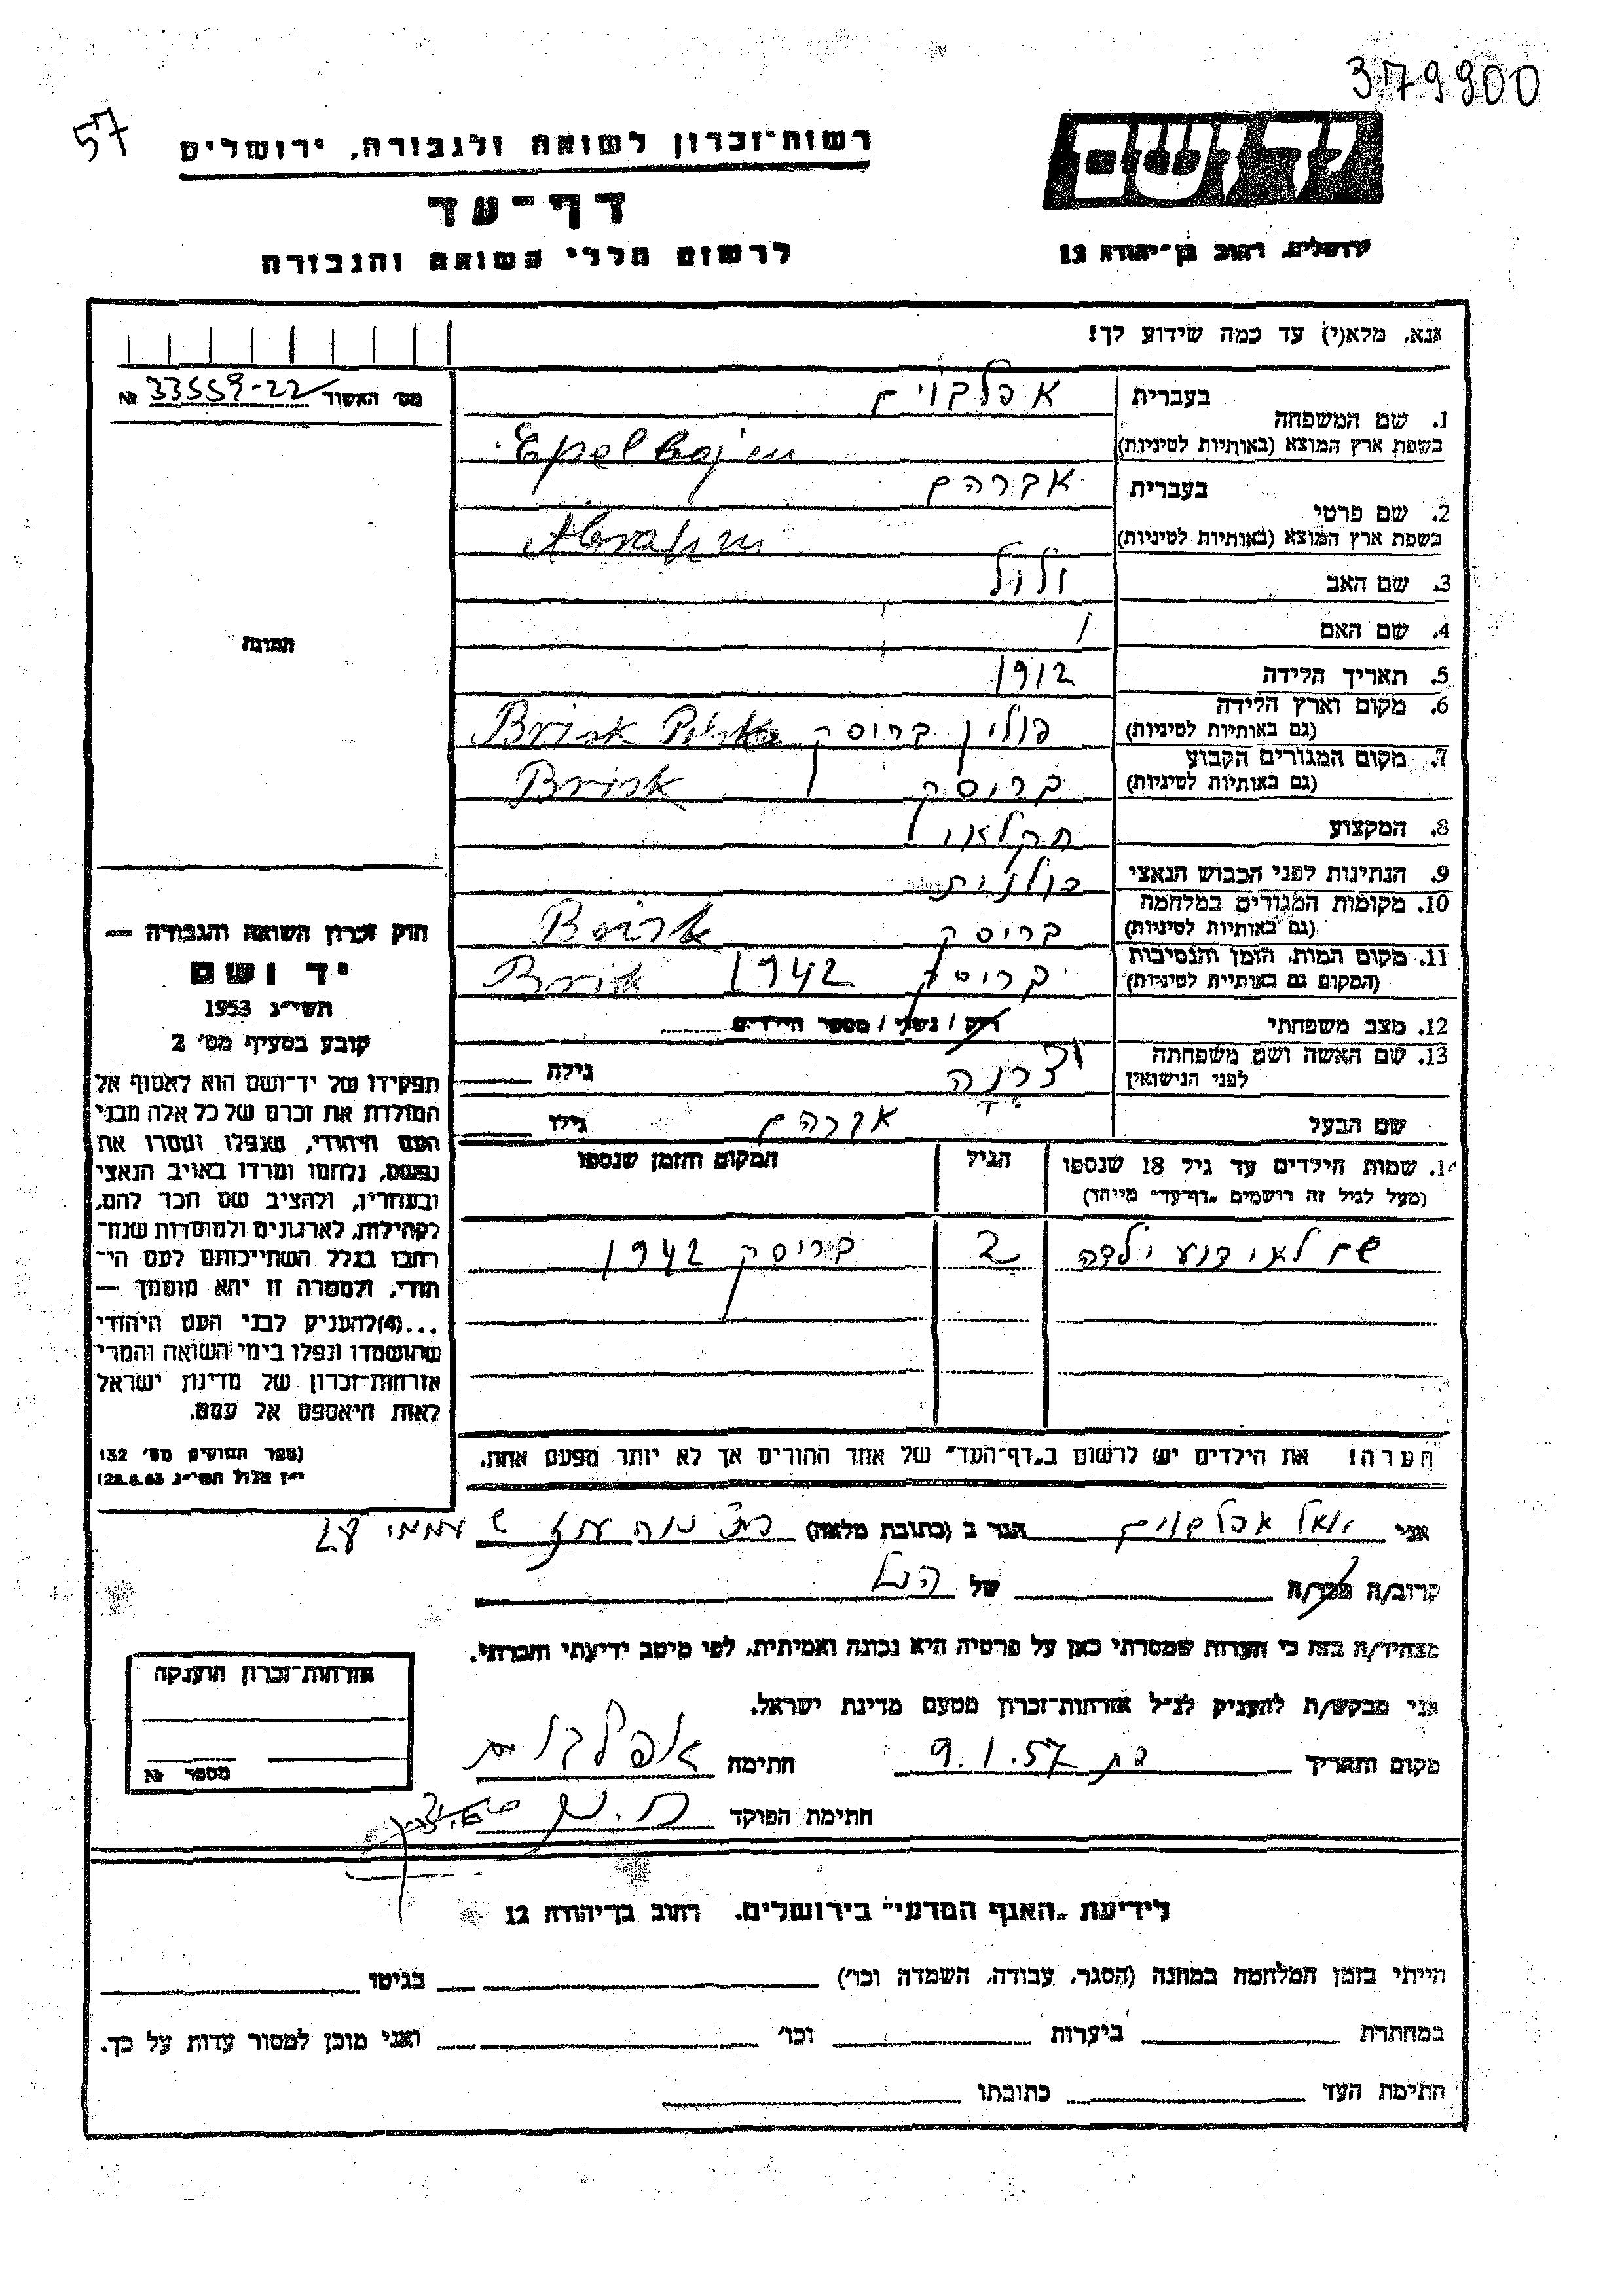 379900
57
יד ושם
רשות־זכרון לשואה ולגבורה, ירושלים
דף־עד
לרשום חללי השואה והגבורה
ירושלים, רחוב בן־יהודה 12
אנא, מלא(י) עד כמה שידוע לך!
מס׳ האשור № 33559-22
1. שם המשפחה בעברית אפלבוים
בשפת ארץ המוצא (באותיות לטיניות) Epelbojm
2. שם פרטי בעברית אברהם
בשפת ארץ המוצא (באותיות לטיניות) Abraham
3. שם האב ולול
4. שם האם /
5. תאריך הלידה 1912
6. מקום וארץ הלידה (גם באותיות לטיניות) פולין בריסק Brisk Polska
7. מקום המגורים הקבוע (גם באותיות לטיניות) בריסק Brisk
8. המקצוע חקלאי
9. הנתינות לפני הכבוש הנאצי פולנית
10. מקומות המגורים במלחמה (גם באותיות לטיניות) בריסק Brisk
11. מקום המות, הזמן והנסיבות (המקום גם באותיות לטיניות) בריסק 1942 Brisk
12. מצב משפחתי רוק / נשוי / מספר הילדים
13. שם האשה ושם משפחתה לפני הנישואין גילה
שם הבעל אברהם גילו
14. שמות הילדים עד גיל 18 שנספו
(מעל לגיל זה רושמים „דף־עד״ מיוחד)
הגיל
המקום והזמן שנספו
שם לא ידוע ילדה 2 בריסק 1942
הערה! את הילדים יש לרשום ב„דף־העד״ של אחד ההורים אך לא יותר מפעם אחת.
תמונה
חוק זכרון השואה והגבורה —
יד ושם
תשי״ג 1953
קובע בסעיף מס׳ 2
תפקידו של יד־ושם הוא לאסוף אל
המולדת את זכרם של כל אלה מבני
העם היהודי, שנפלו ומסרו את
נפשם, נלחמו ומרדו באויב הנאצי
ובעוזריו, ולהציב שם וזכר להם,
לקהילות, לארגונים ולמוסדות שנח־
רבו בגלל השתייכותם לעם הי־
הודי, ולמטרה זו יהא מוסמך —
...(4)להעניק לבני העם היהודי
שהושמדו ונפלו בימי השואה והמרי
אזרחות־זכרון של מדינת ישראל
לאות היאספם אל עמם.
(ספר החוקים מס׳ 132
י״ז אלול תשי״ג 28.8.53)
אני יואל אפלבוים הגר ב (כתובת מלאה)
קרוב/ה מכר/ה של הנ״ל
מצהיר/ה בזה כי העדות שמסרתי כאן על פרטיה היא נכונה ואמיתית, לפי מיטב ידיעתי והכרתי.
אני מבקש/ת להעניק לנ״ל אזרחות־זכרון מטעם מדינת ישראל.
מקום ותאריך 9.1.57 חתימה אפלבוים
חתימת הפוקד
אזרחות־זכרון הוענקה
מספר №
לידיעת „האגף המדעי״ בירושלים, רחוב בן־יהודה 12
הייתי בזמן המלחמה במחנה (הסגר, עבודה, השמדה וכו׳) בגיטו
במחתרת ביערות וכו׳ ואני מוכן למסור עדות על כך.
חתימת העד כתובתו